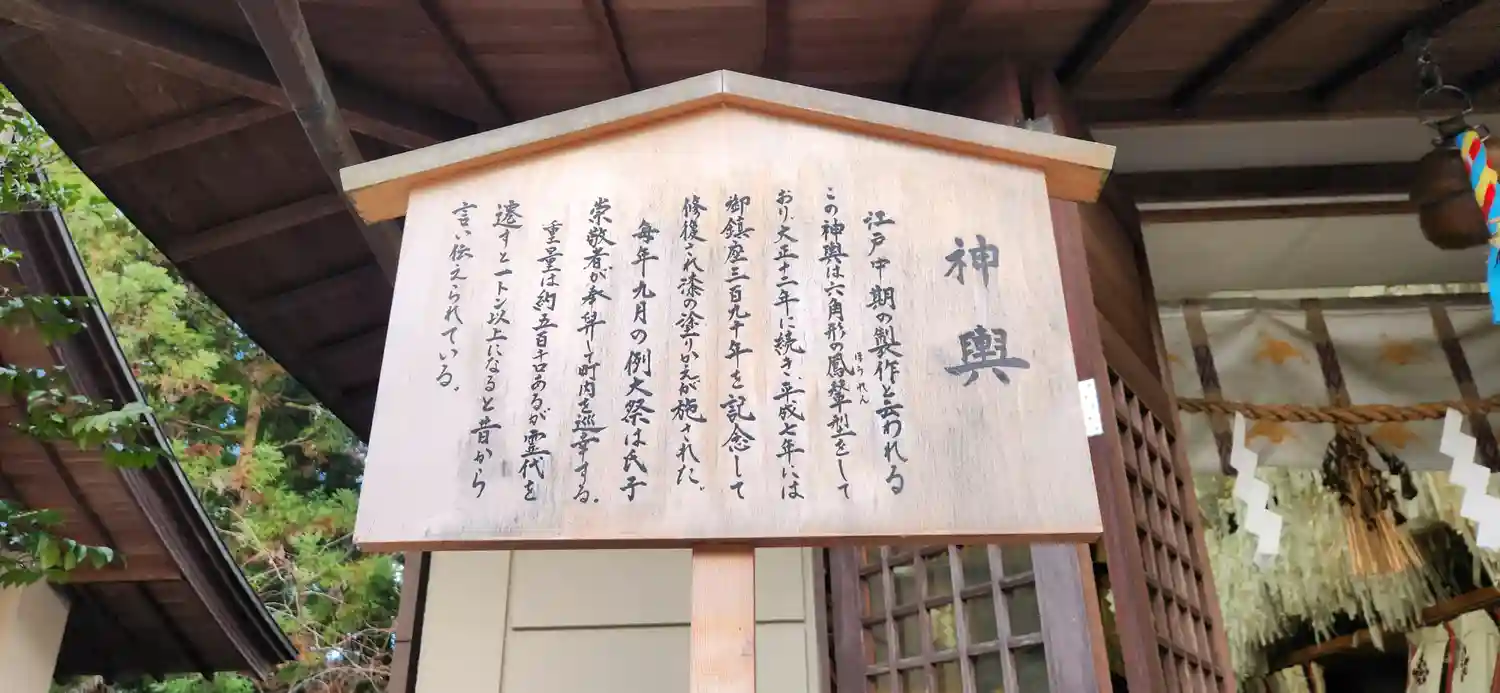 神輿
江戸中期の製作と云われる
この神輿は六角形の鳳輦型をして
ほうれん
おり、大正十二年に続き、平成七年には
御鎮座三百九十年を記念して
修復され漆の塗りかえが施された。
毎年九月の例大祭は氏子
崇敬者が参舁して町内を巡幸する。
重量は約五百キロあるが霊代を
遷すと一トン以上になると昔から
言い伝えられている。